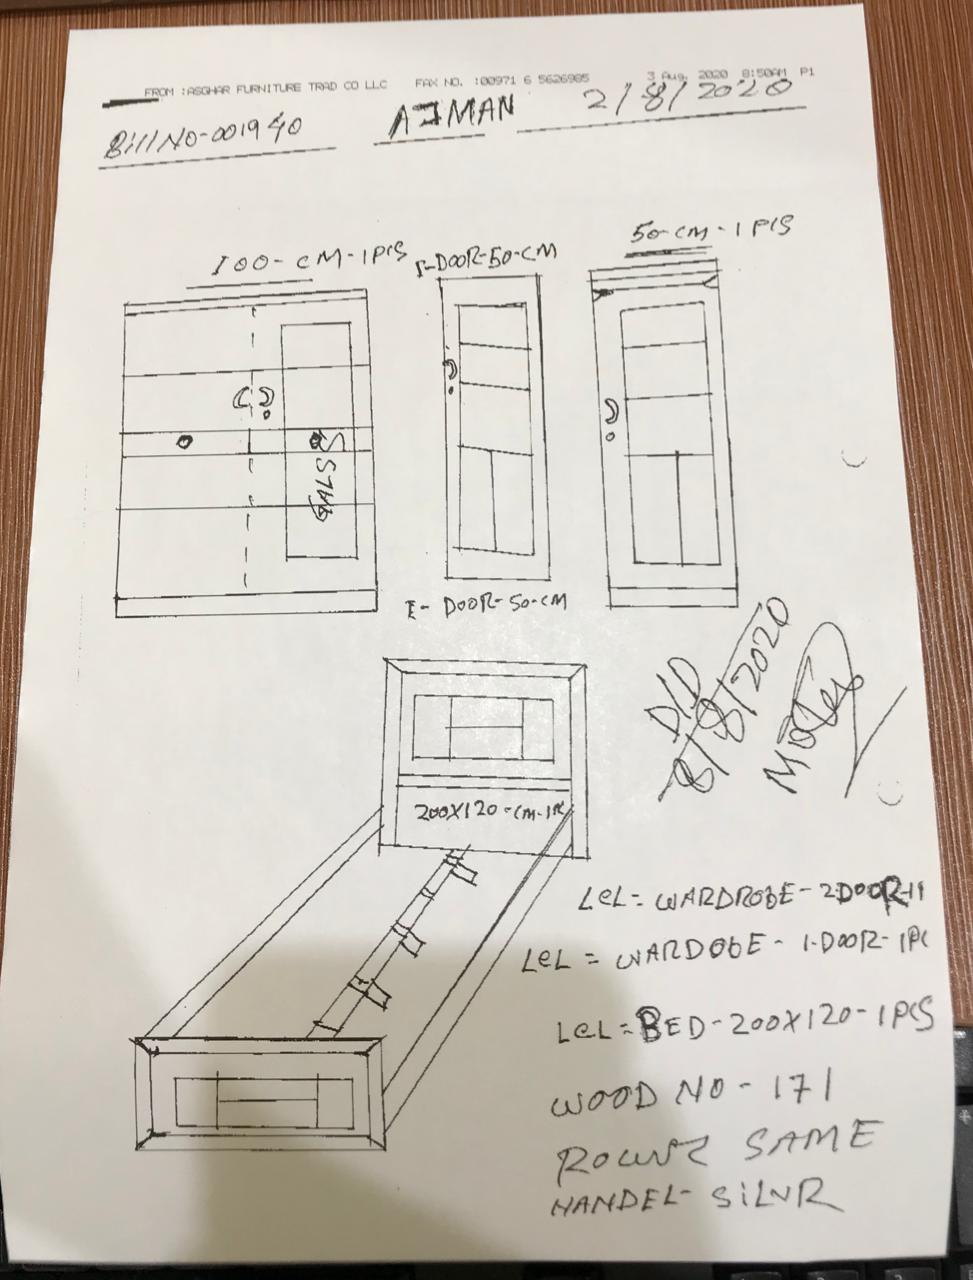 FROM :ASGHAR FURNITURE TRAD CO LLC FAX NO. :00971 6 5626985 3 Aug. 2020 8:50AM P1
Bill NO-001940 AJMAN 2/8/2020
100-CM-1PCS
DOOR-50-CM
50-CM-1PCS
GALSS
E-DOOR-50-CM
D/D
8/8/2020
200X120-CM-1PC
LCL=WARDROBE-2DOOR-1
LCL=WARDOBE-1-DOOR-1PC
LCL=BED-200X120-1PCS
WOOD NO-171
SAME
HANDEL-SILVR